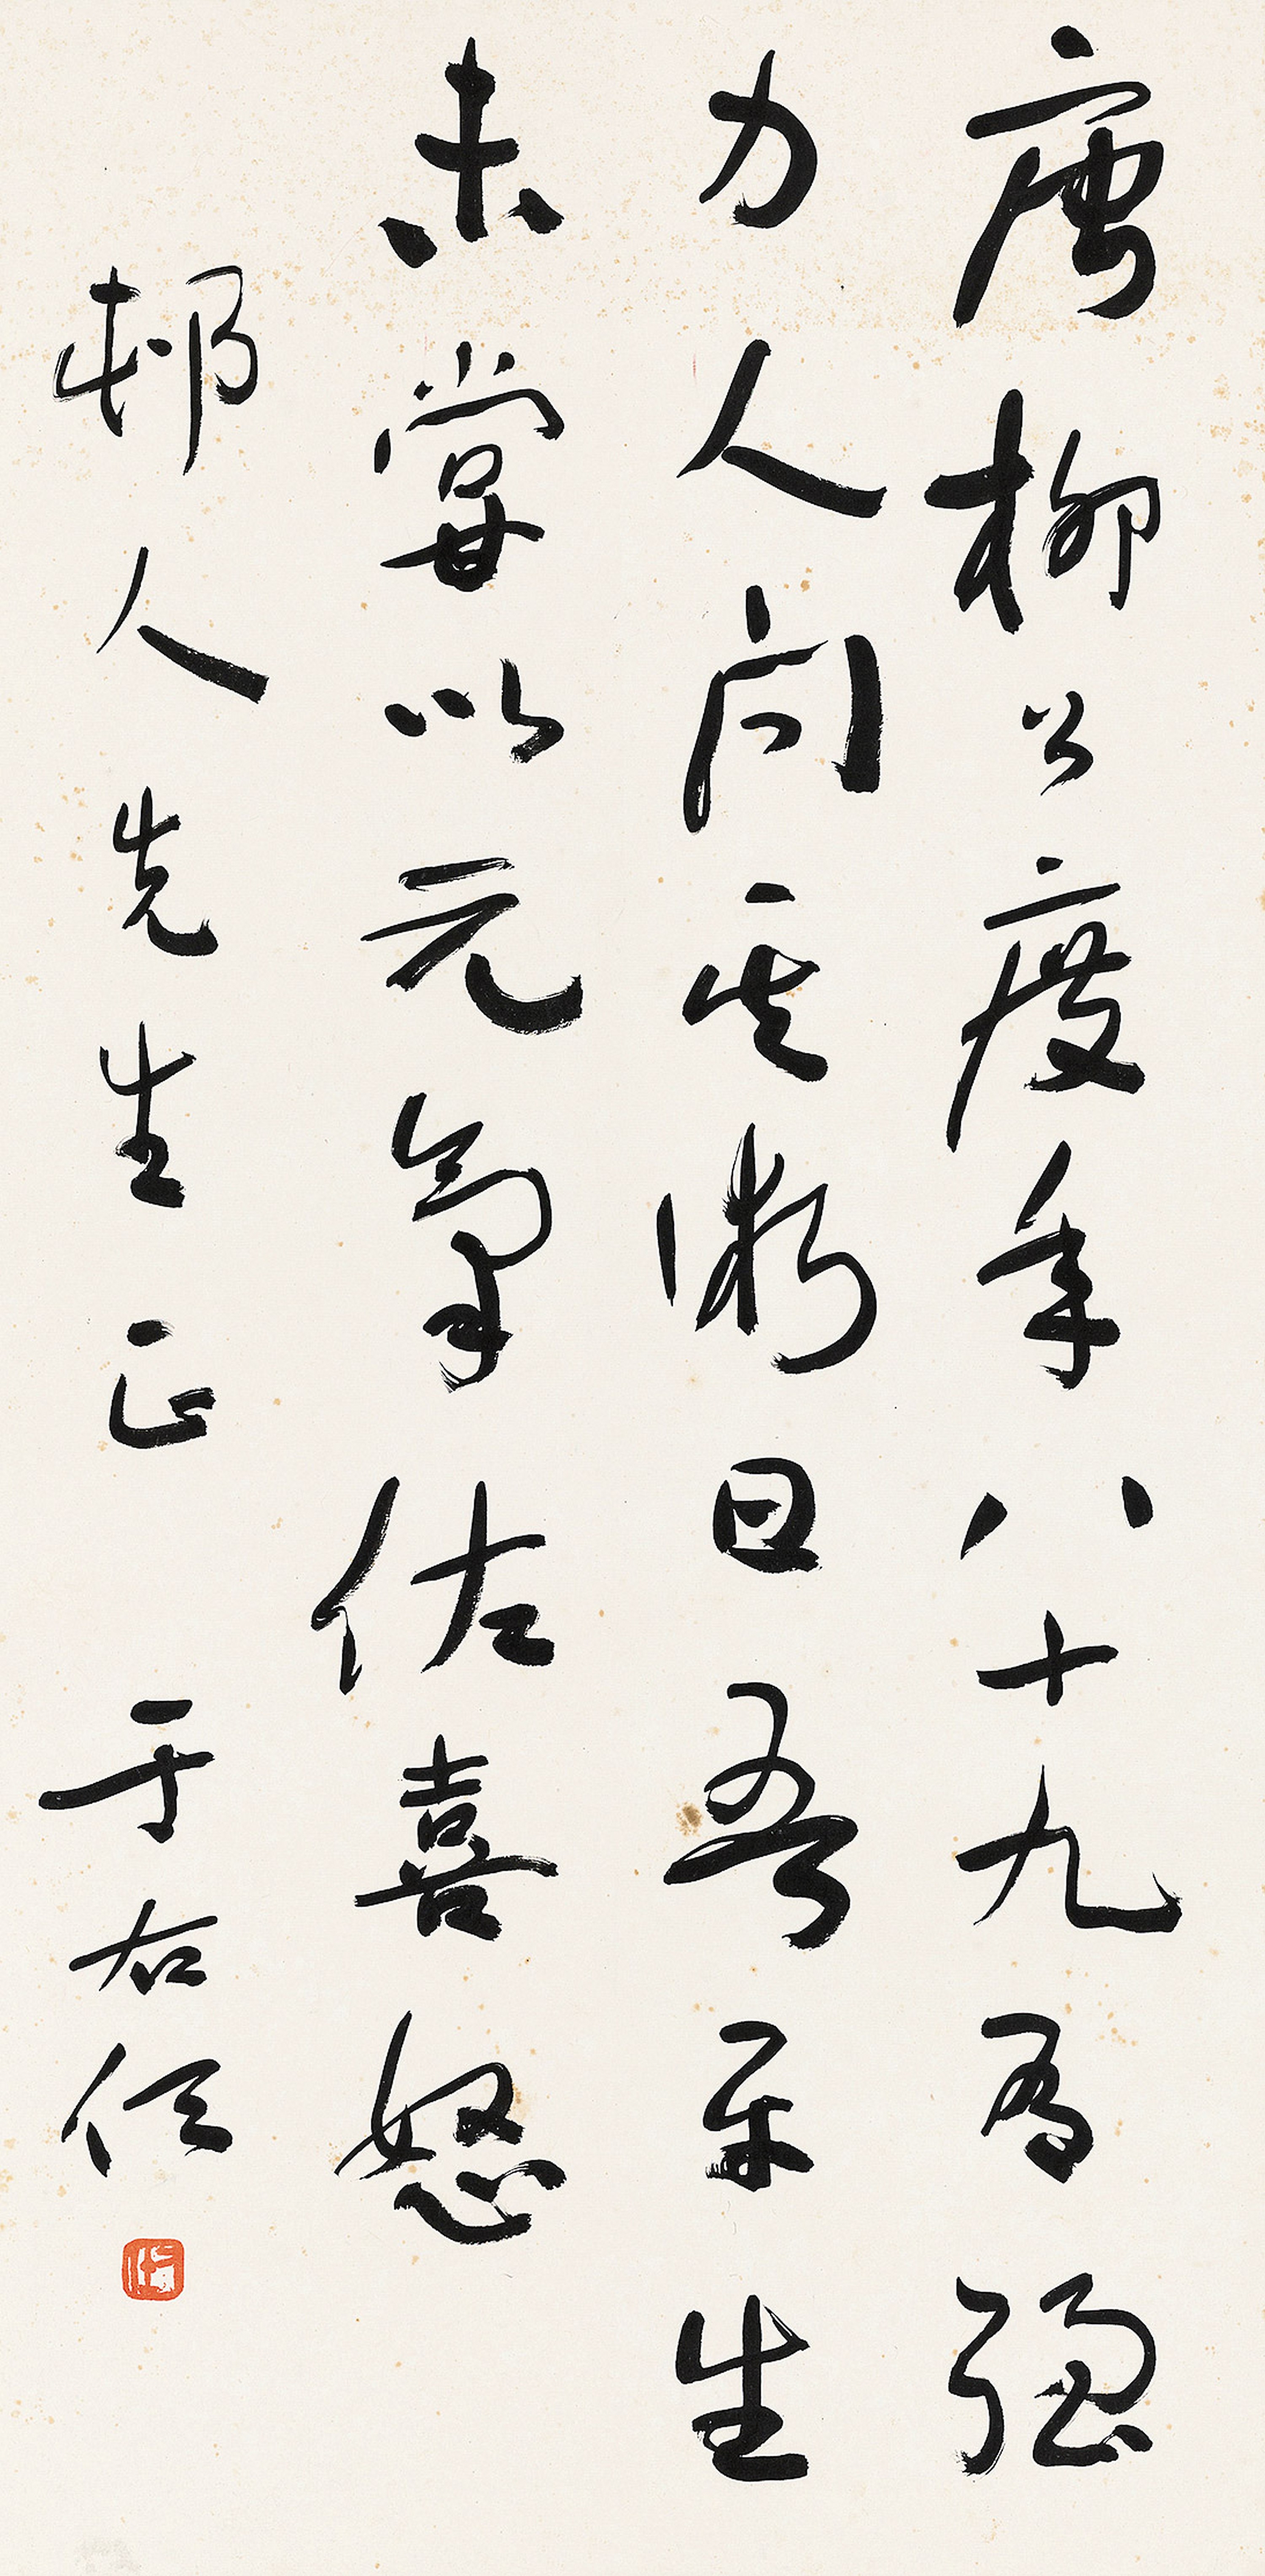 唐柳公度年八十九有强
力人问其術曰吾平生
未嘗以元氣佐喜怒
邨人先生正 于右任